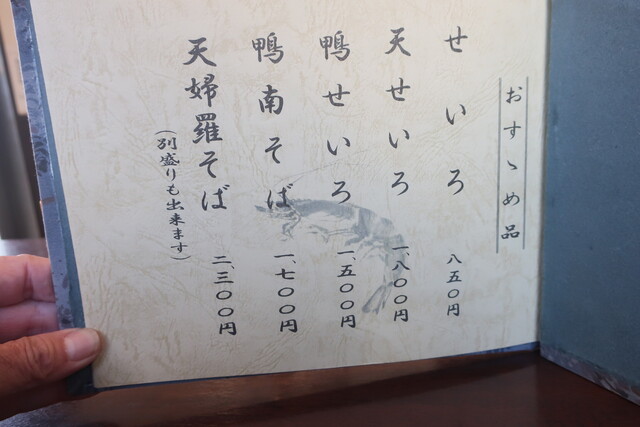 おすゝめ品
せいろ 八五〇円
天せいろ 一、八〇〇円
鴨せいろ 一、五〇〇円
鴨南そば 一、七〇〇円
天婦羅そば 二、三〇〇円
（別盛りも出来ます）